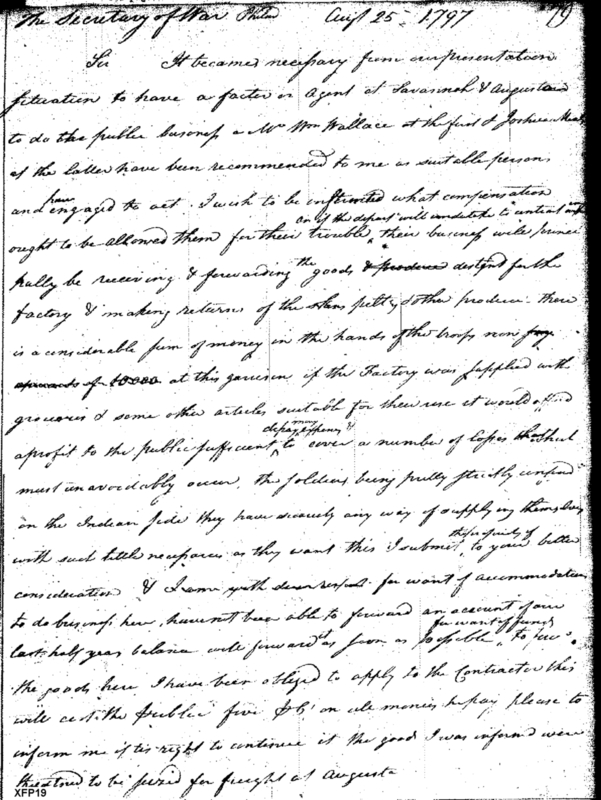 The Secretary of War Philad Augt 25th 1797 79
Sir It became necessary from our present
situation to have a factor or Agent at Savannah & Augusta
to do the public business a Mr Wm Wallace at the first & Joshua
of the latter have been recommended to me as suitable persons
and have engaged to act. I wish to be informed what compensation
ought to be allowed them for their trouble, their business will princi
on if the depart will undertake to
pally be receiving & forwarding the goods & produce destined for the
factory & making returns of the skins peltry & other produce. there
is a considerable sum of money in the hands of the troops now
upwards of 10.000 at this garrison if the Factory was supplied with
groceries & some other articles suitable for their use it would afford
a profit to the public sufficient to cover a number of losses that
may defray expences &
must unavoidably occur, the soldiers being pretty strictly confined
on the Indian side they have scarcely any way of supplying themselves
with such little necessaries as they want this I submit to your better
the propriety of
consideration & I am with for want of accommodation
to do business here, haven't been able to forward an account of our
last half year balance will forward it as soon as possible, to
for want of funds
the goods here I have been obliged to apply to the Contractor this
will cost the public five on all monies he pay please to
inform me if tis right to continue it the goods I was informed were
threatened to be seized for freight at Augusta
XFP19